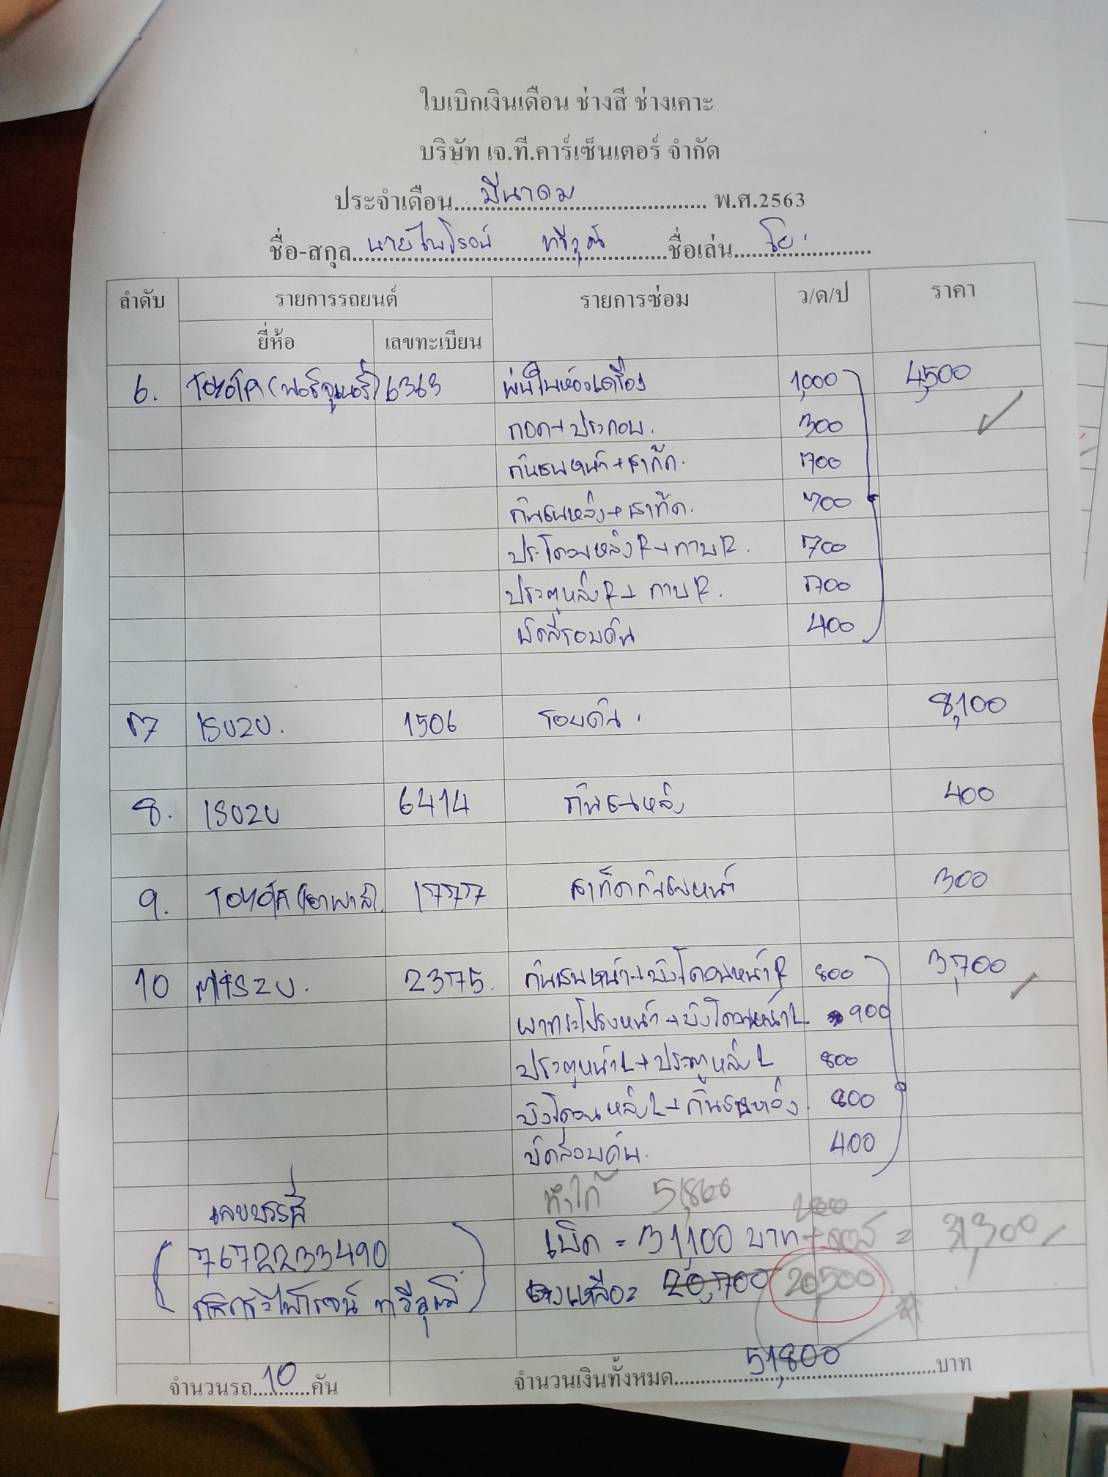 ใบเบิกเงินเดือน ช่างสี ช่างเคาะ
บริษัท เจ.ที.คาร์เซ็นเตอร์ จำกัด
ประจำเดือน.....มีนาคม..... พ.ศ.2563
ชื่อ-สกุล.....นายไพโรจน์ ทวีวุฒิ.....ชื่อเล่น.....โย.....
ลำดับ รายการรถยนต์ รายการซ่อม ว/ด/ป ราคา
ยี่ห้อ เลขทะเบียน
6. TOYOTA (ฟอร์จูนเนอร์) 6363 พ่นในห้องเครื่อง 1,000 4,500
ถอด+ประกอบ. 300
กันชนหน้า+สาทิด. 700
กันชนหลัง+สาทิด. 700
ประโดนหลังR+กาบR. 700
ประตูหลังR+กาบR. 700
ขัดสีรอบคัน 400
7 ISUZU. 1506 รอบคัน. 8,100
8. ISUZU 6414 กันชนหลัง 400
9. TOYOTA 1777 สาทิดกันชนหน้า 300
10 2375. กันชนหน้า+บังโคลนหน้าR 800 3,700
ฝากระโปรงหน้า+บังโคลนหน้าL 900
ประตูหน้าL+ประตูหลังL 800
บังโคลนหลังL+กันชนหลัง. 800
ขัดรอบคัน. 400
เลขบัญชี ทำได้ 51,800
200
7672233490 เบิก = 31,100 บาท = 31,300
ไพโรจน์ ทวีวุฒิ คงเหลือ= 20,700 20,500
จำนวนรถ....10....คัน จำนวนเงินทั้งหมด.....51,800.....บาท